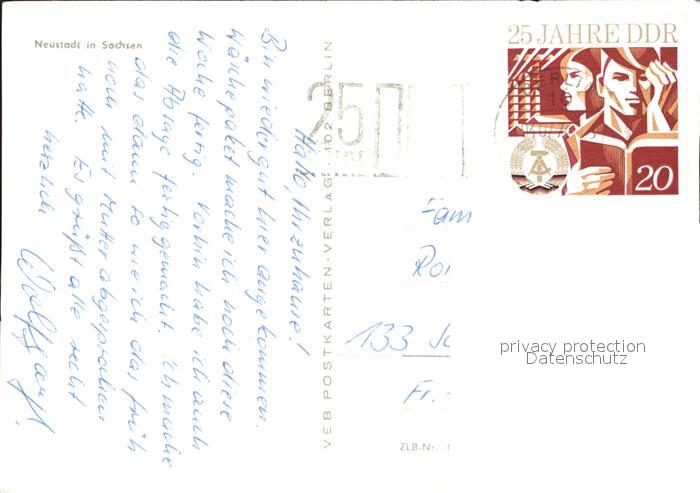 Neustadt in Sachsen
Hallo, Ihr zuhause!
Bin wieder gut hier angekommen.
Wäschepaket mache ich noch diese
Woche fertig. Vorhin habe ich auch
die Absage fertig gemacht. Ich mache
das dann so wie ich das früh
noch mit Mutter abgesprochen
hatte. Es grüßt alle recht
herzlich
Wolfgang!
VEB POSTKARTEN-VERLAG · 102 BERLIN
25
25 JAHRE DDR
20
Fam
133
Fr.-
ZLB-Nr.
privacy protection
Datenschutz